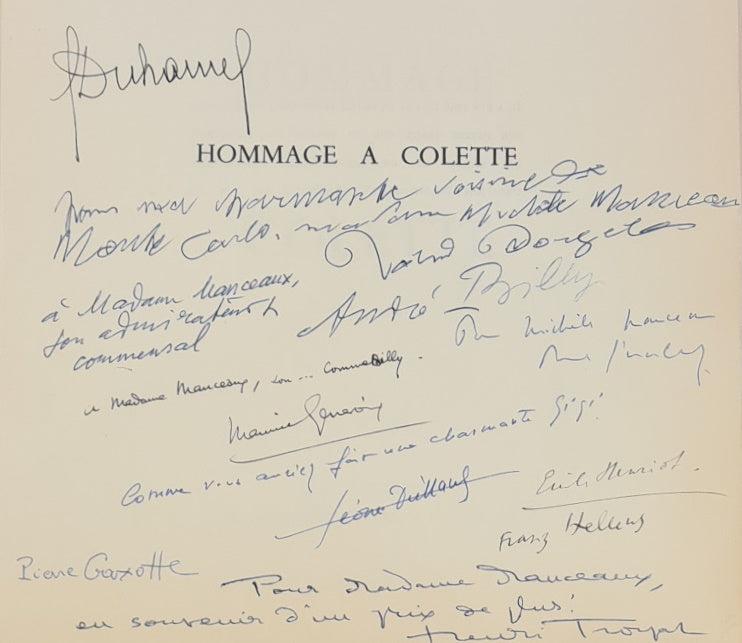 Duhamel
HOMMAGE A COLETTE
Pour ma charmante voisine de
Monte Carlo, madame Michèle Manceaux
Roland Dorgelès
à Madame Manceaux,
son admirateur et
commensal
André Billy
Michèle Manceaux
à Madame Manceaux, son... Comme Billy.
Maurice Genevoix
Comme vous auriez fait une charmante Gigi!
Léone
Emile Henriot.
Franz Hellens
Pierre Gaxotte
Pour Madame Manceaux,
en souvenir d'un prix de plus!
Henri Troyat